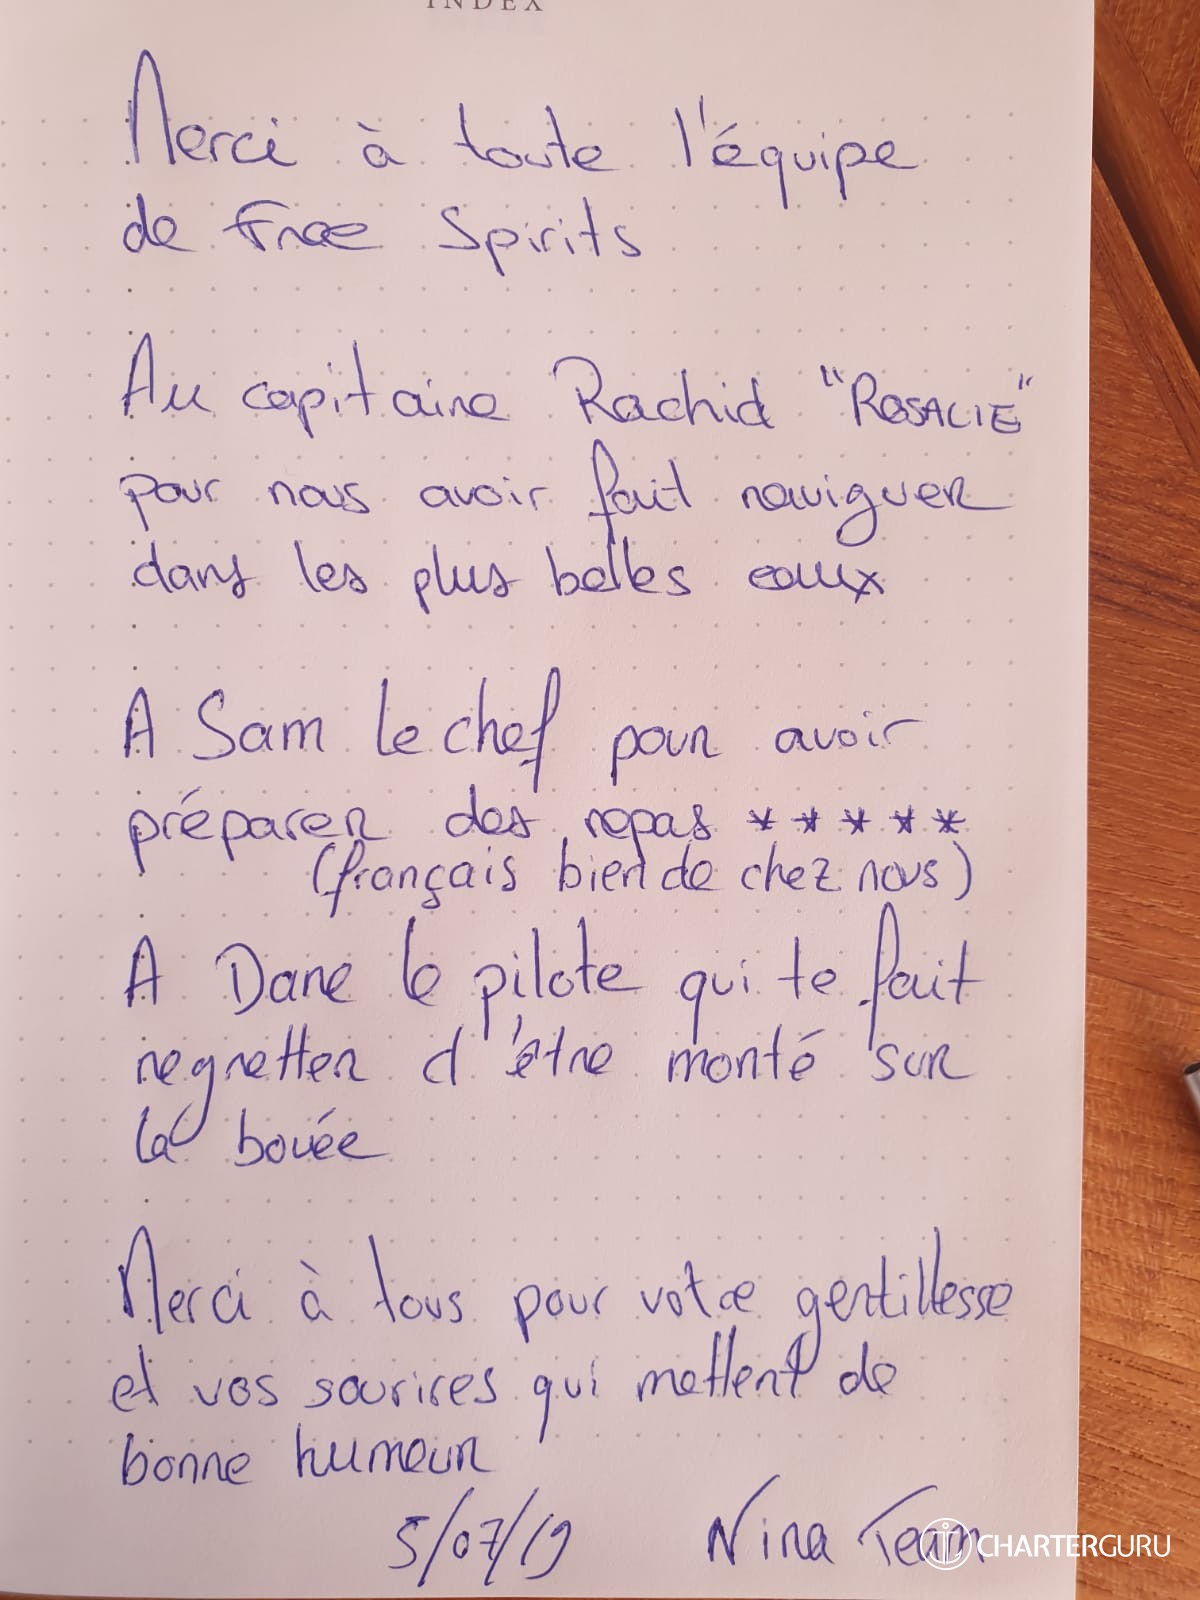 INDEX
Merci à toute l'équipe
de Free Spirits
Au capitaine Rachid "ROSALIE"
pour nous avoir fait naviguer
dans les plus belles eaux
A Sam le chef pour avoir
préparer des repas *****
(français bien de chez nous)
A Dane le pilote qui te fait
regretter d'être monté sur
la bouée
Merci à tous pour votre gentillesse
et vos sourires qui mettent de
bonne humeur
5/07/19 Nina Team
CHARTERGURU